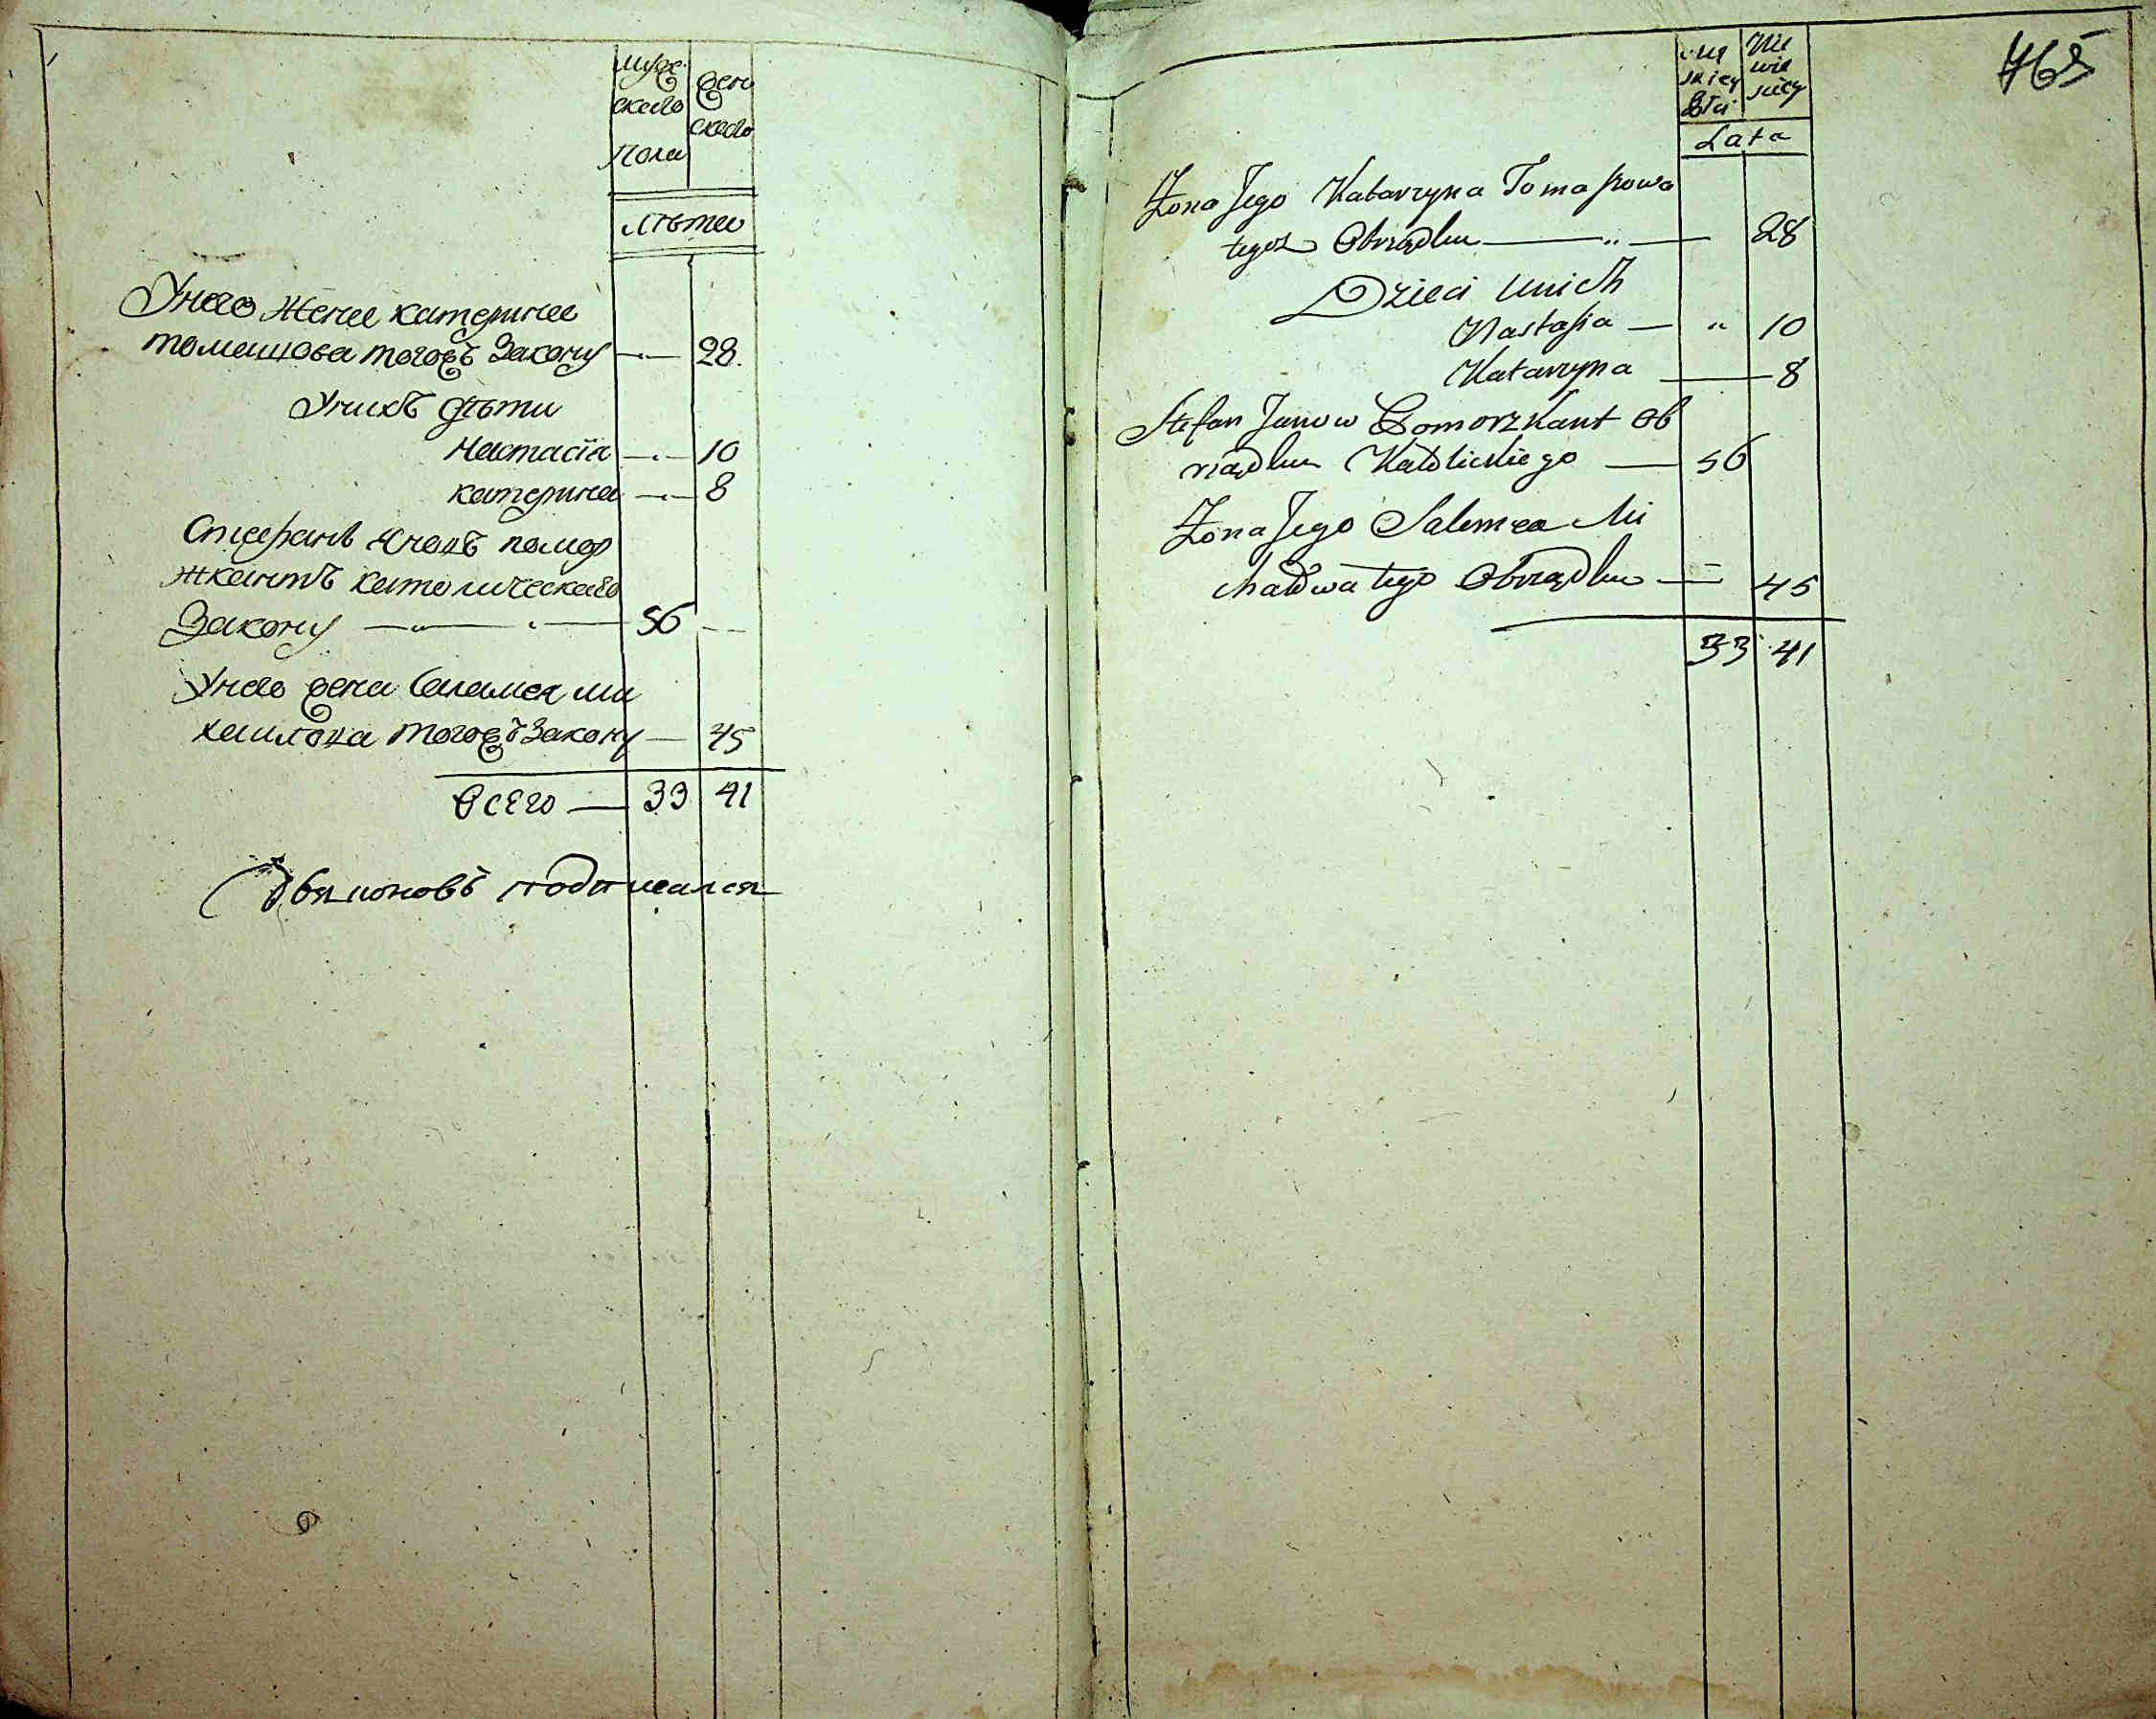 мужескаго
женскаго
Пола
лѣта
Унего жена катерина
томашова тогожъ Закону — 28.
Унихъ дѣти
настасїа — 10
катерина — 8
Стефанъ Яновъ помор
жкантъ католическаго
Закону — 56
Унего жена Саламея ми
хаилова тогожъ Закону — 45
Всего — 33 41
подписался
465
Lata
Żona Jego Katarzyna Tomaszowa
tegoż Obrządku — 28
Dzieci Unich
Nastasia — " 10
Katarzyna — 8
Stefan Janow Pomorzkant Ob
rządku Katolickiego — 56
Żona Jego Salomea Mi
chałowa tego Obrządku — 45
33 41